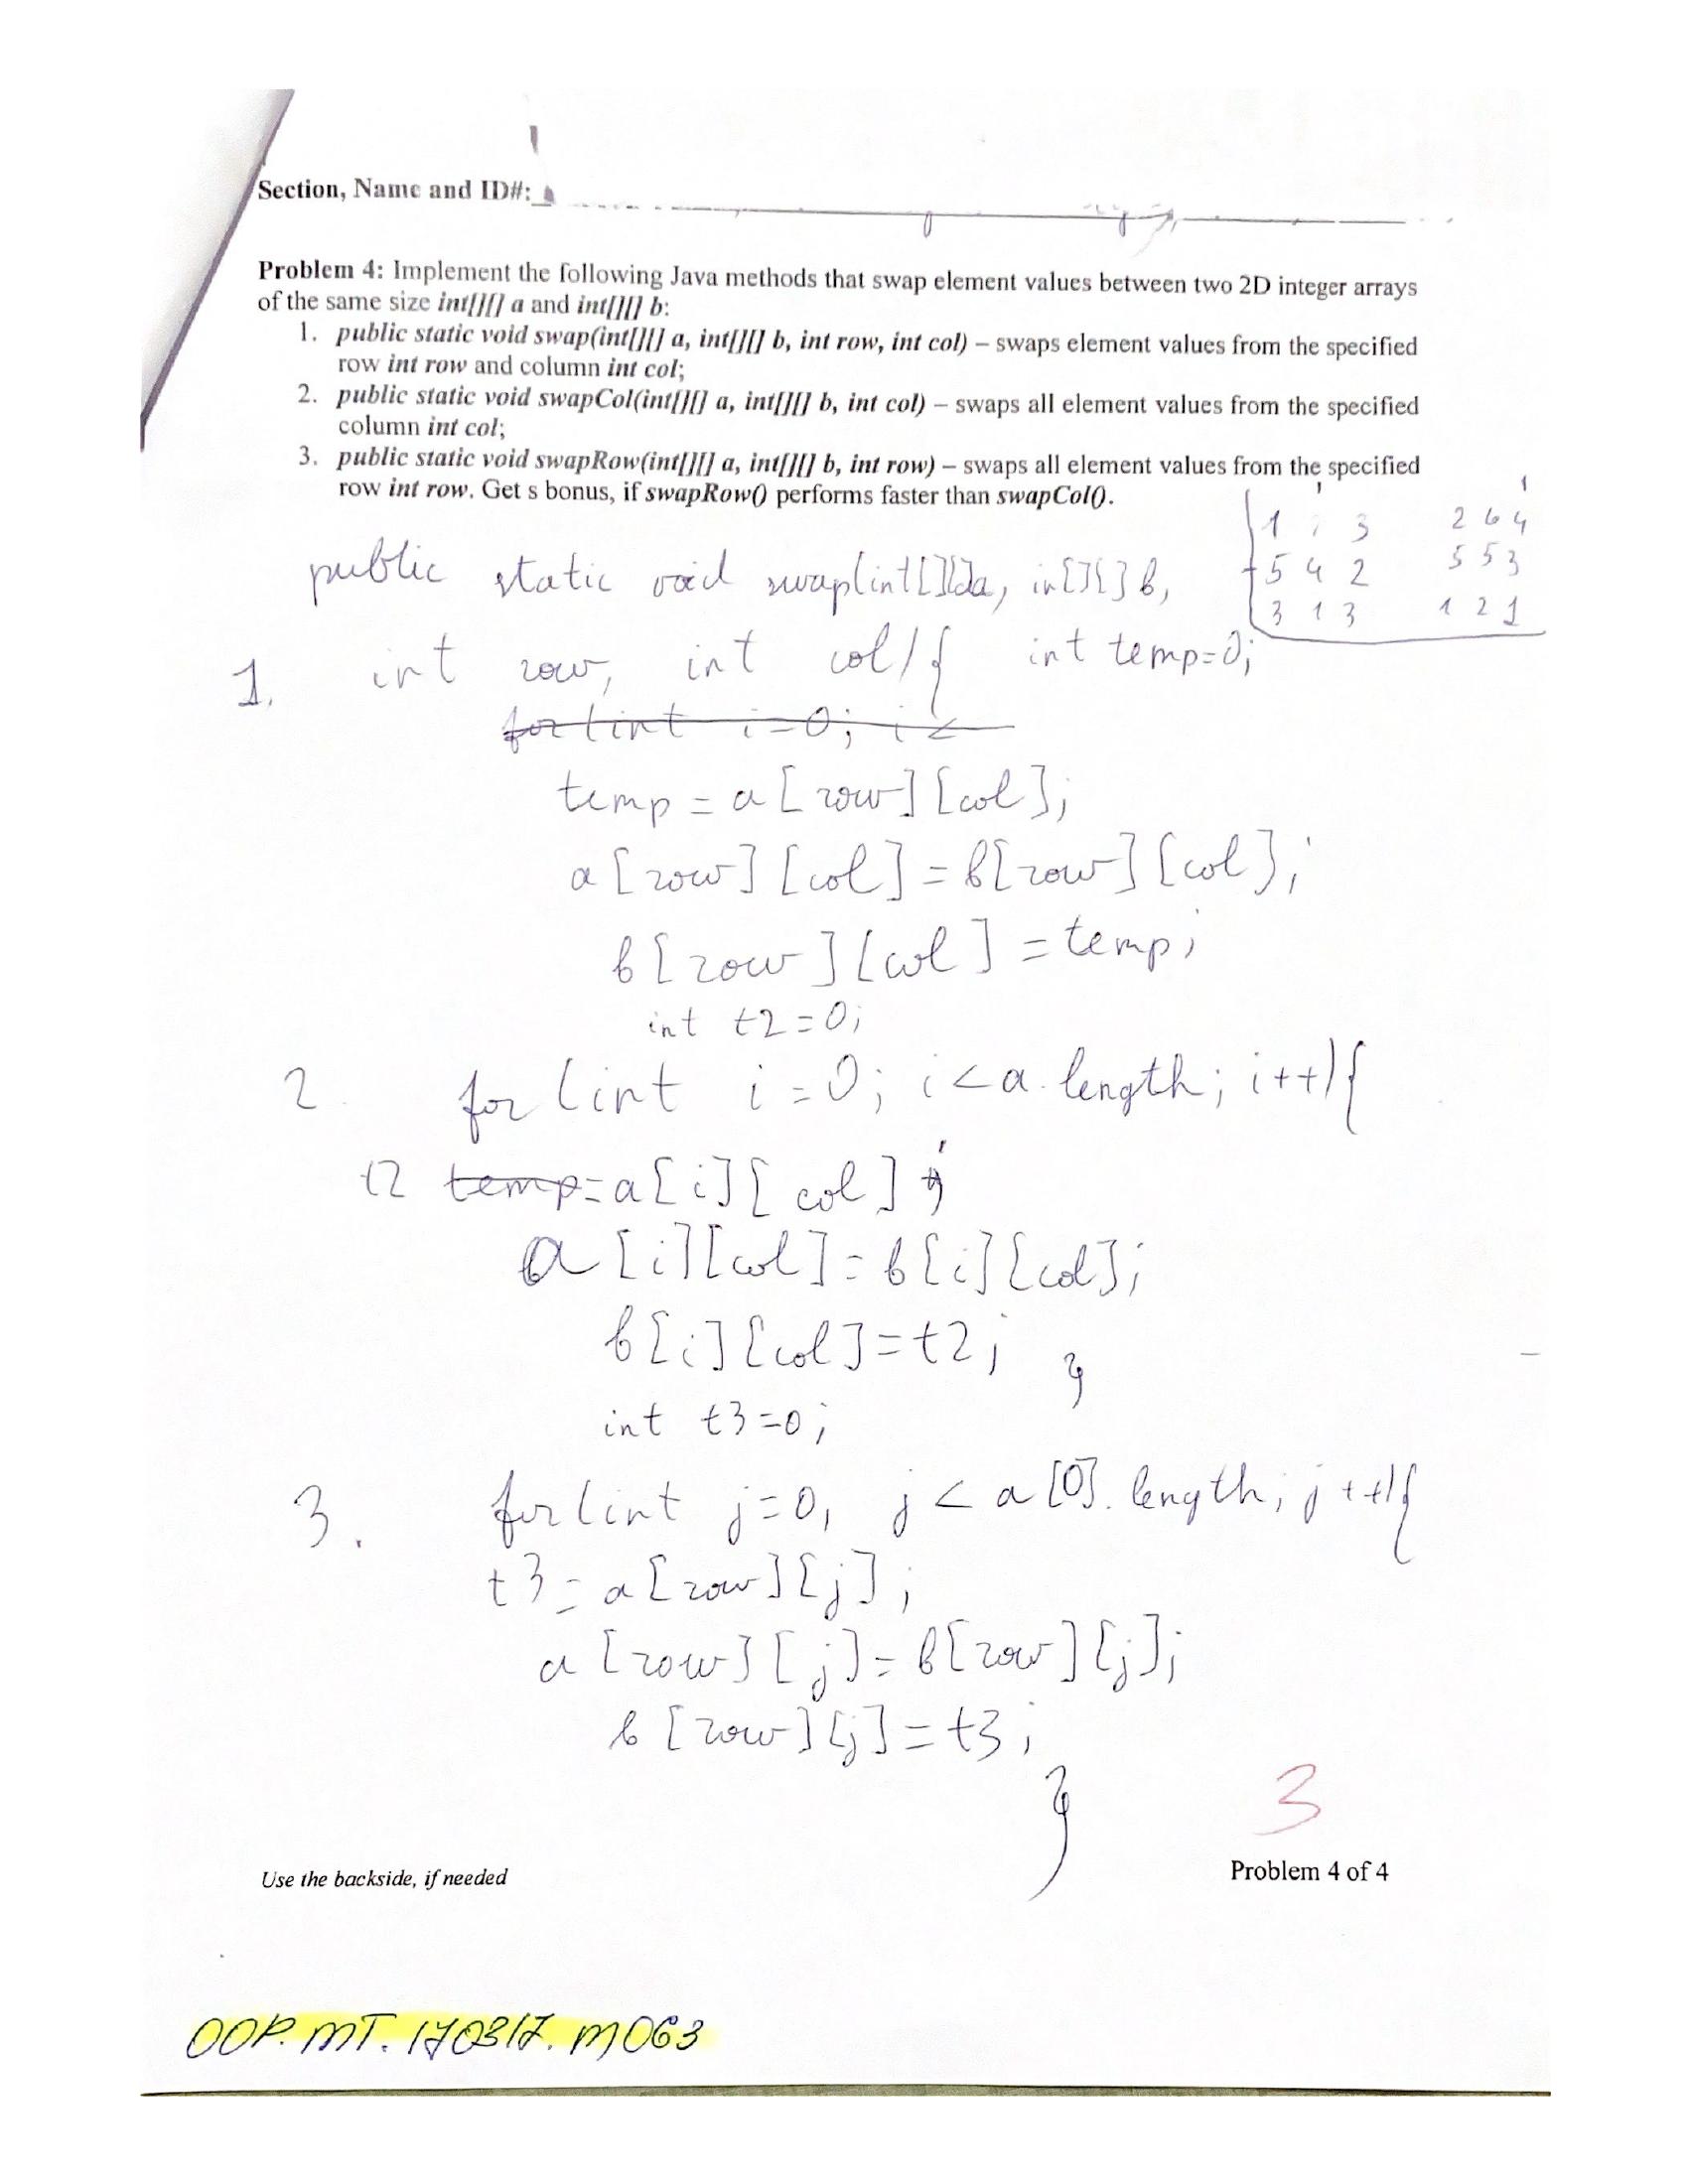 Section, Name and ID#:
Problem 4: Implement the following Java methods that swap element values between two 2D integer arrays
of the same size int[][] a and int[][] b:
1. public static void swap(int[][] a, int[][] b, int row, int col) – swaps element values from the specified
row int row and column int col;
2. public static void swapCol(int[][] a, int[][] b, int col) – swaps all element values from the specified
column int col;
3. public static void swapRow(int[][] a, int[][] b, int row) – swaps all element values from the specified
row int row. Get s bonus, if swapRow() performs faster than swapCol().
1 3 2 6 4
5 4 2 5 5 3
3 1 3 1 2 1
public static void swap(int[][]a, in[][] b,
1. int row, int col){ int temp=0;
for(int i=0; i<
temp = a[row][col];
a[row][col] = b[row][col];
b[row][col] = temp;
int t2=0;
2 for (int i=0; i<a.length; i++){
t2 temp=a[i][col];
a[i][col]=b[i][col];
b[i][col]=t2; }
int t3=0;
3. for(int j=0, j<a[0].length; j++){
t3=a[row][j];
a[row][j]=b[row][j];
b[row][j]=t3;
}
3
Use the backside, if needed
Problem 4 of 4
OOP.MT.170317.M063